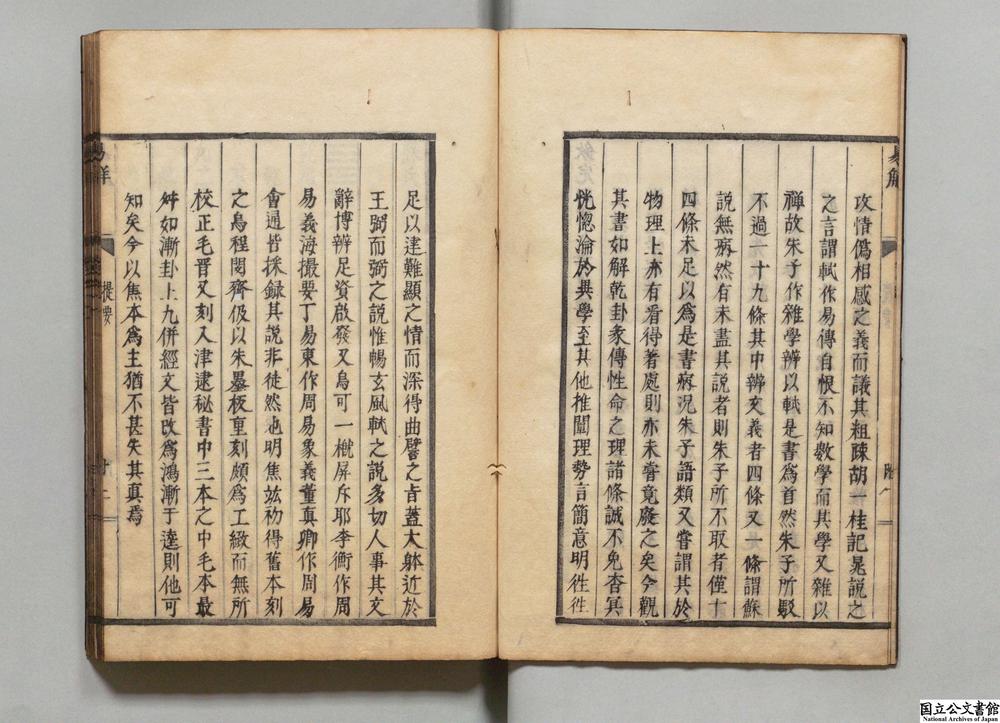 攻情僞相感之義而議其粗疎胡一桂記晁説之
之言謂軾作易傳自恨不知數學而其學又雜以
禪故朱子作雜學辨以軾是書爲首然朱子所駁
不過一十九條其中辨文義者四條又一條謂蘇
説無病然有未盡其説者則朱子所不取者僅十
四條未足以爲是書病況朱子語類又嘗謂其於
物理上亦有看得著處則亦未嘗竟廢之矣今觀
其書如解乾卦彖傳性命之理諸條誠不免杳冥
恍惚淪於異學至其他推闡理勢言簡意明徃徃
足以達難顯之情而深得曲譬之旨蓋大躰近於
王弼而弼之説惟暢玄風軾之説多切人事其文
辭博辨足資啟發又烏可一槪屏斥耶李衡作周
易義海撮要丁易東作周易象義董真卿作周易
會通皆採録其説非徒然也明焦竑初得舊本刻
之烏程閔齊伋以朱墨板重刻頗爲工緻而無所
校正毛晋又刻入津逮秘書中三本之中毛本最
舛如漸卦上九併經文皆改爲鴻漸于逵則他可
知矣今以焦本爲主猶不甚失其真焉
提要
国立公文書館
National Archives of Japan